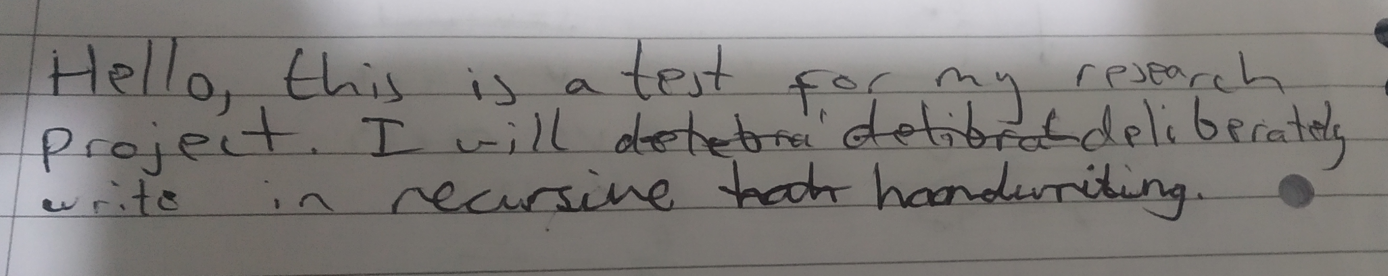 Hello, this is a test for my research
project. I will deliberately
write in recursive handwriting.